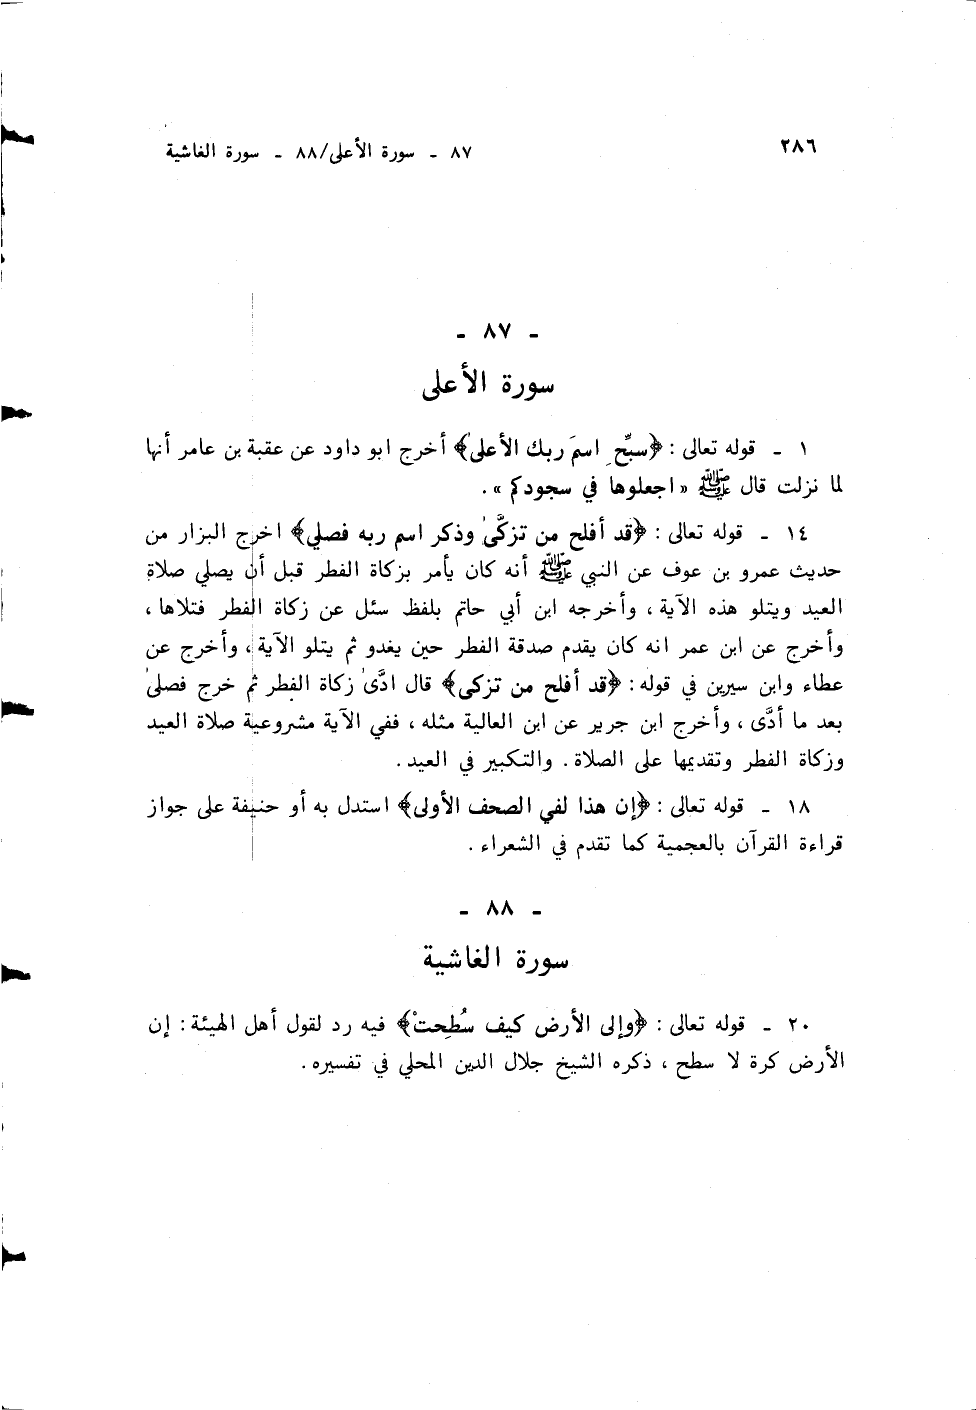 ٢٨٦
٨٧ ـ سورة الأعلى/٨٨ ـ سورة الغاشية
ـ ٨٧ ـ
سورة الأعلى
١ ـ قوله تعالى : ﴿سبِّحِ اسمَ ربك الأعلىٰ﴾ أخرج ابو داود عن عقبة بن عامر أنها
لما نزلت قال ﷺ « اجعلوها في سجودكم » .
١٤ ـ قوله تعالى : ﴿قد أفلح من تزكَّىٰ وذكر اسم ربه فصلي﴾ اخرج البزار من
حديث عمرو بن عوف عن النبي ﷺ أنه كان يأمر بزكاة الفطر قبل أن يصلي صلاة
العيد ويتلو هذه الآية ، وأخرجه ابن أبي حاتم بلفظ سئل عن زكاة الفطر فتلاها ،
وأخرج عن ابن عمر انه كان يقدم صدقة الفطر حين يغدو ثم يتلو الآية ، وأخرج عن
عطاء وابن سيرين في قوله : ﴿قد أفلح من تزكى﴾ قال ادَّىٰ زكاة الفطر ثم خرج فصلىٰ
بعد ما أدَّى ، وأخرج ابن جرير عن ابن العالية مثله ، ففي الآية مشروعية صلاة العيد
وزكاة الفطر وتقديمها على الصلاة . والتكبير في العيد .
١٨ ـ قوله تعالى : ﴿إن هذا لفي الصحف الأولى﴾ استدل به أو حنيفة على جواز
قراءة القرآن بالعجمية كما تقدم في الشعراء .
ـ ٨٨ ـ
سورة الغاشية
٢٠ ـ قوله تعالى : ﴿وإلى الأرض كيف سُطِحتْ﴾ فيه رد لقول أهل الهيئة : إن
الأرض كرة لا سطح ، ذكره الشيخ جلال الدين المحلي في تفسيره .